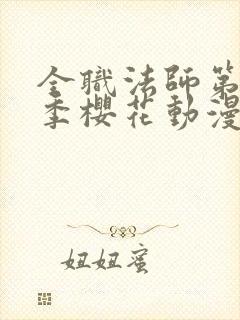 全職法師第
季櫻花動漫
妞妞蜜